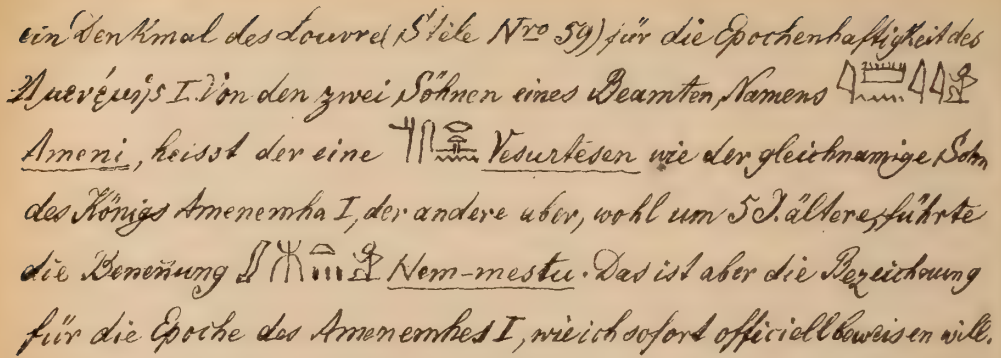 ein Denkmal des Louvre (Stèle Nro 59) für die Epochenhaftigkeit des
I. Von den zwei Söhnen eines Beamten, Namens 𓇋𓏠𓈖𓇋𓇋𓀀
Ameni, heisst der eine 𓄊𓋴𓂋𓏏𓈖 Vesurtesen wie der gleichnamige Sohn
des Königs Amenemha I, der andere aber, wohl um 5 J. ältere, führte
die Benen̄ung Nem-mestu. Das ist aber die Bezeichnung
für die Epoche des Amenemhes I, wie ich sofort officiell beweisen will.